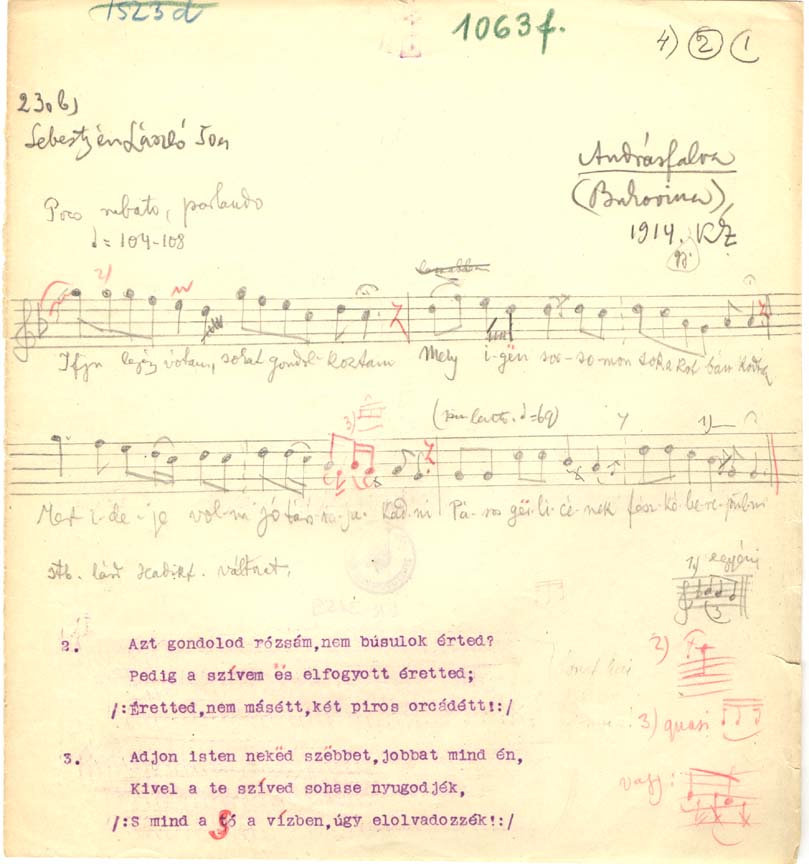 1523 d
1063 f.
4) 2 1
23.b)
Sebestyén László 50 é
Andrásfalva
(Bukovina),
1914. KZ
gy.
Poco rubato, parlando
= 104-108
Ifju legény vótam, sokat gondol-koztam Mely i-gën sos-so-mon sokakot bán-kodtam
2)
3)
= 69)
1)
Mert i-de-je vol-na jó társ-ra-ja- kad-ni Pá-ros gëi-li-cé-nek fész-kö-be-re-pűl-ni
stb. lásd Hadikf. változat.
1) egyéni
2. Azt gondolod rózsám,nem búsulok érted?
Pedig a szívem ës elfogyott éretted;
/:Éretted,nem másétt,két piros orcádétt!:/
2)
3) quasi
3. Adjon isten nekëd szëbbet,jobbat mind én,
Kivel a te szíved sohase nyugodjék,
/:S mind a só a vízben,úgy elolvadozzék!:/
vagy: